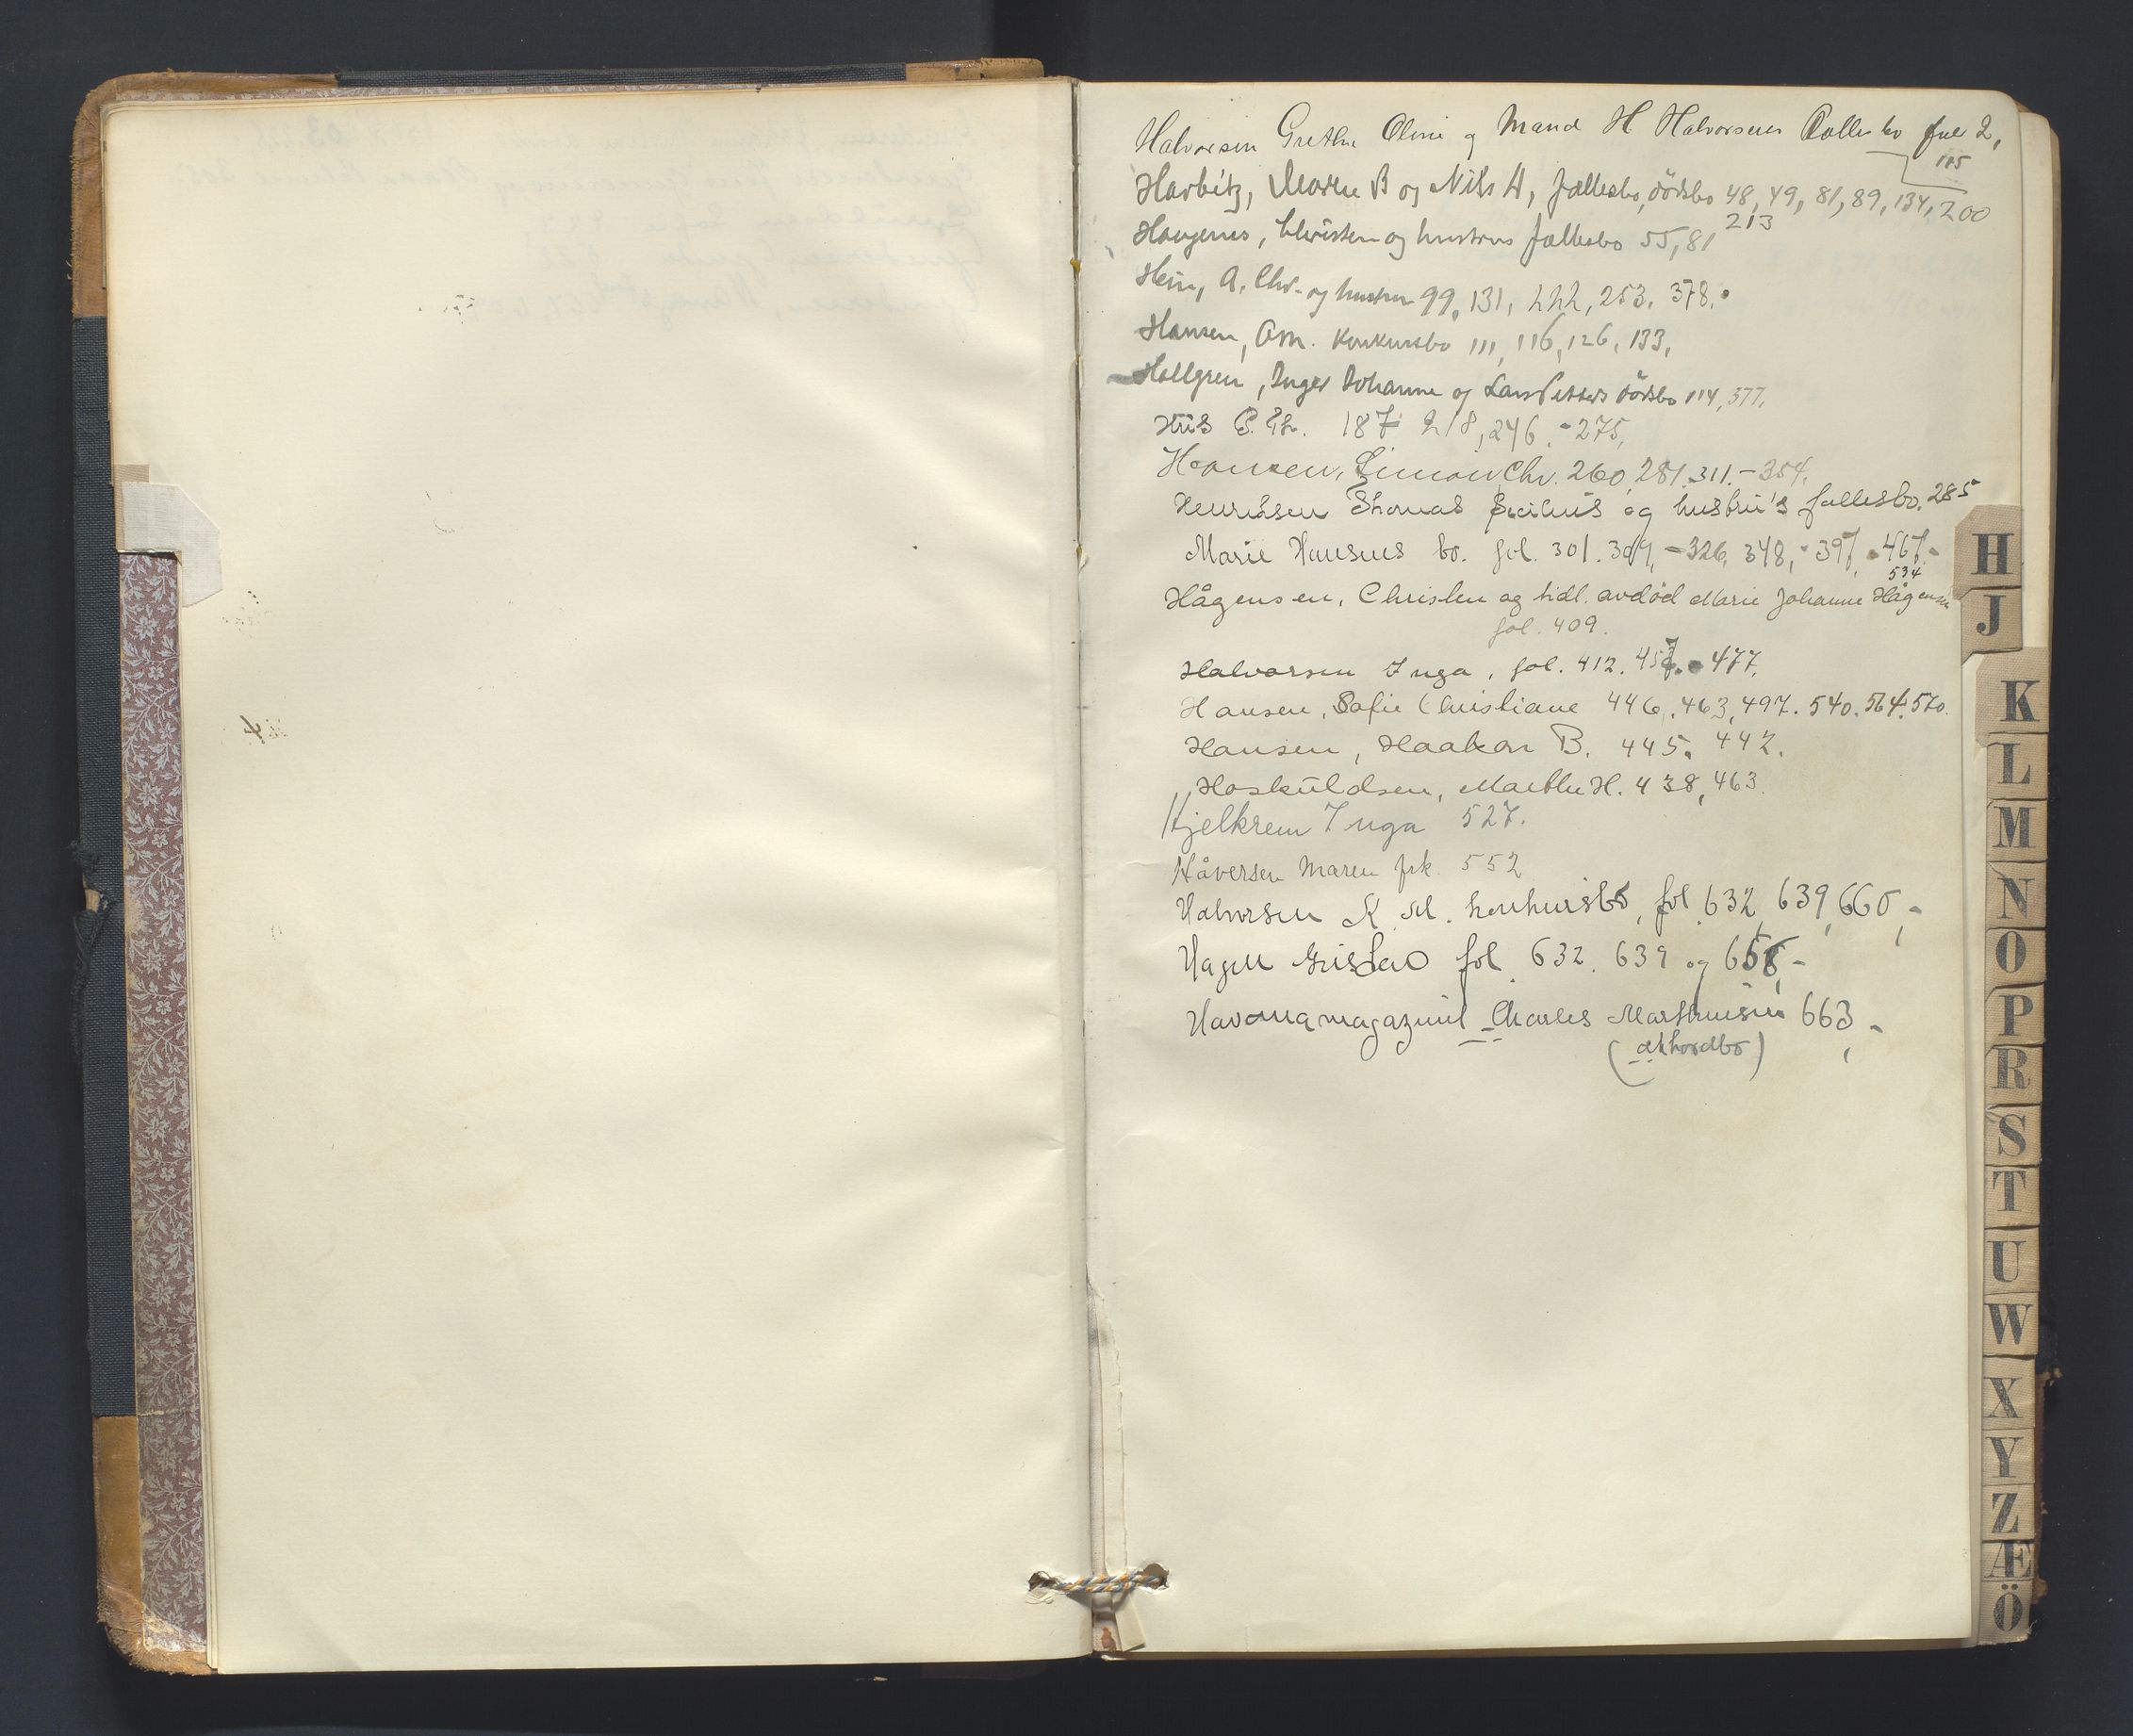 Halvorsen Grethe Oline og Mand H Halvorsens Fællesbo fol 2,
115
Harbitz, Maren B og Nils H, fællesbo, dödsbo 48, 49, 81, 89, 134, 200
213
Haugenes, Christen og hustrus fællesbo 55, 81
Hein, A. Chr. og hustru 99, 131, 222, 253. 378.
Hansen, Om. Konkursbo 111, 116, 126, 133,
Hallgren, Inger Johanne og Lars Petters dödsbo 114, 377.
P. Th. 187 218, 246. - 275,
Hansen, Simon Chr. 260, 281. 311. - 354.
Henriksen Thomas og hustru's fællesbo. 285
Marie Hansens bo. fol. 301. 309, - 326, 348, - 397, - 467. -
534
Hågensen, Christen og tidl. avdöd Marie Johanne Hågensen
fol. 409.
Halvorsen Inga, fol. 412. 457. 477.
Hansen, Sofie Christiane 446, 463, 497. 540. 564. 570.
Hansen, Haakon B. 445. 442.
Hoskuldsen, Marthe H. 438, 463.
Hjelkrem Inga 527.
Håversen Maren frk. 552
Halvorsen K. M. konkursbo, fol 632, 639, 660, -
Hagen Gustav fol 632. 639 og 658, -
Havanamagazinet Charles Marthinsen 663, -
(akkordbo)
H
J
K
L
M
N
O
P
R
S
T
U
W
X
Y
Z
Æ
Ö